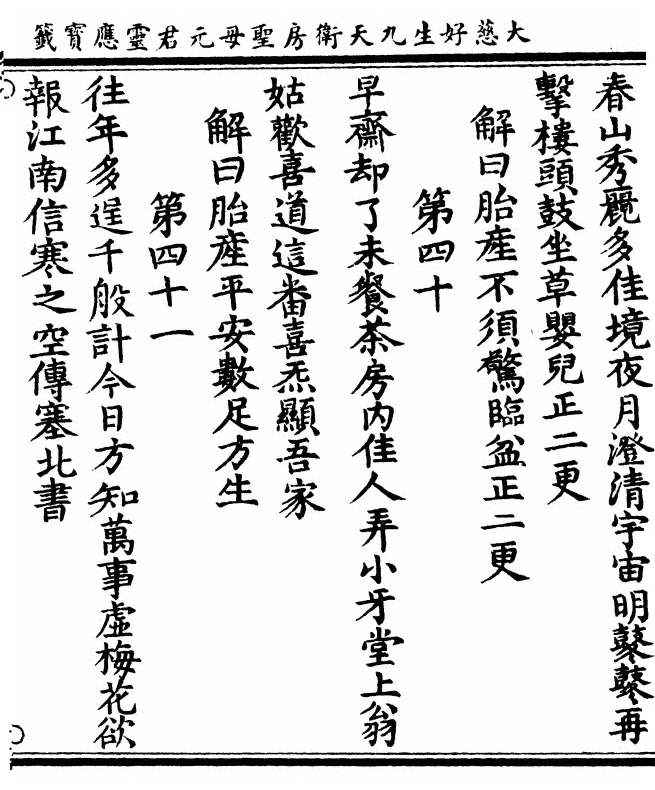 大慈好生九天衛房聖母元君靈應寶籤
春山秀麗多佳境夜月澄清宇宙明鼕鼕再
擊樓頭鼓坐草嬰兒正二更
解曰胎產不須驚臨盆正二更
第四十
早齋却了未餐茶房内佳人弄小牙堂上翁
姑歡喜道這番喜炁顯吾家
解曰胎產平安數足方生
第四十一
往年多逞千般計今日方知萬事虛梅花欲
報江南信寒之空傳塞北書